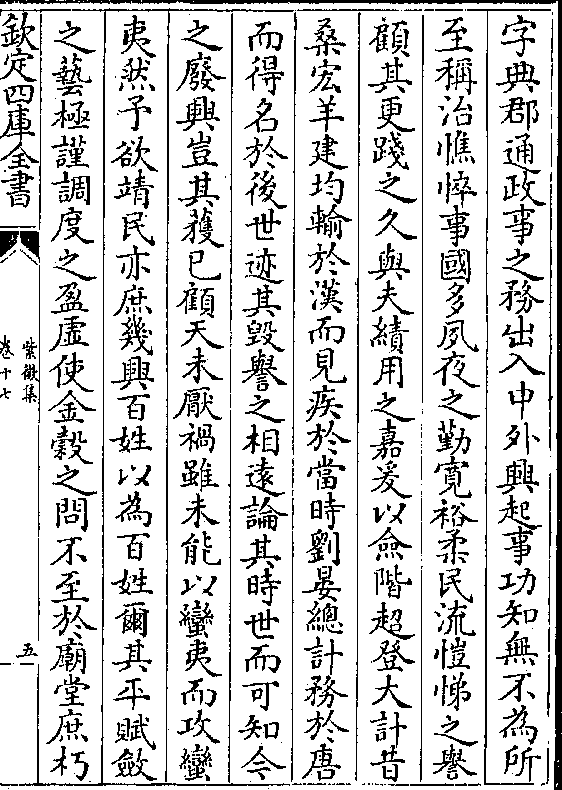 字典郡通政事之務出入中外興起事功知無不為所
至稱治憔悴事國多夙夜之勤寬裕柔民流愷悌之譽
顧其更踐之久與夫績用之嘉爰以僉階超登大計昔
桑宏羊建均輸於漢而見疾於當時劉晏總計務於唐
而得名於後世迹其毀譽之相遠論其時世而可知今
之廢興豈其獲已顧天未厭禍雖未能以蠻夷而攻蠻
夷然予欲靖民亦庶幾興百姓以為百姓爾其平賦斂
之藝極謹調度之盈虛使金穀之問不至於廟堂庶朽
欽定四庫全書
紫微集
卷十七
五